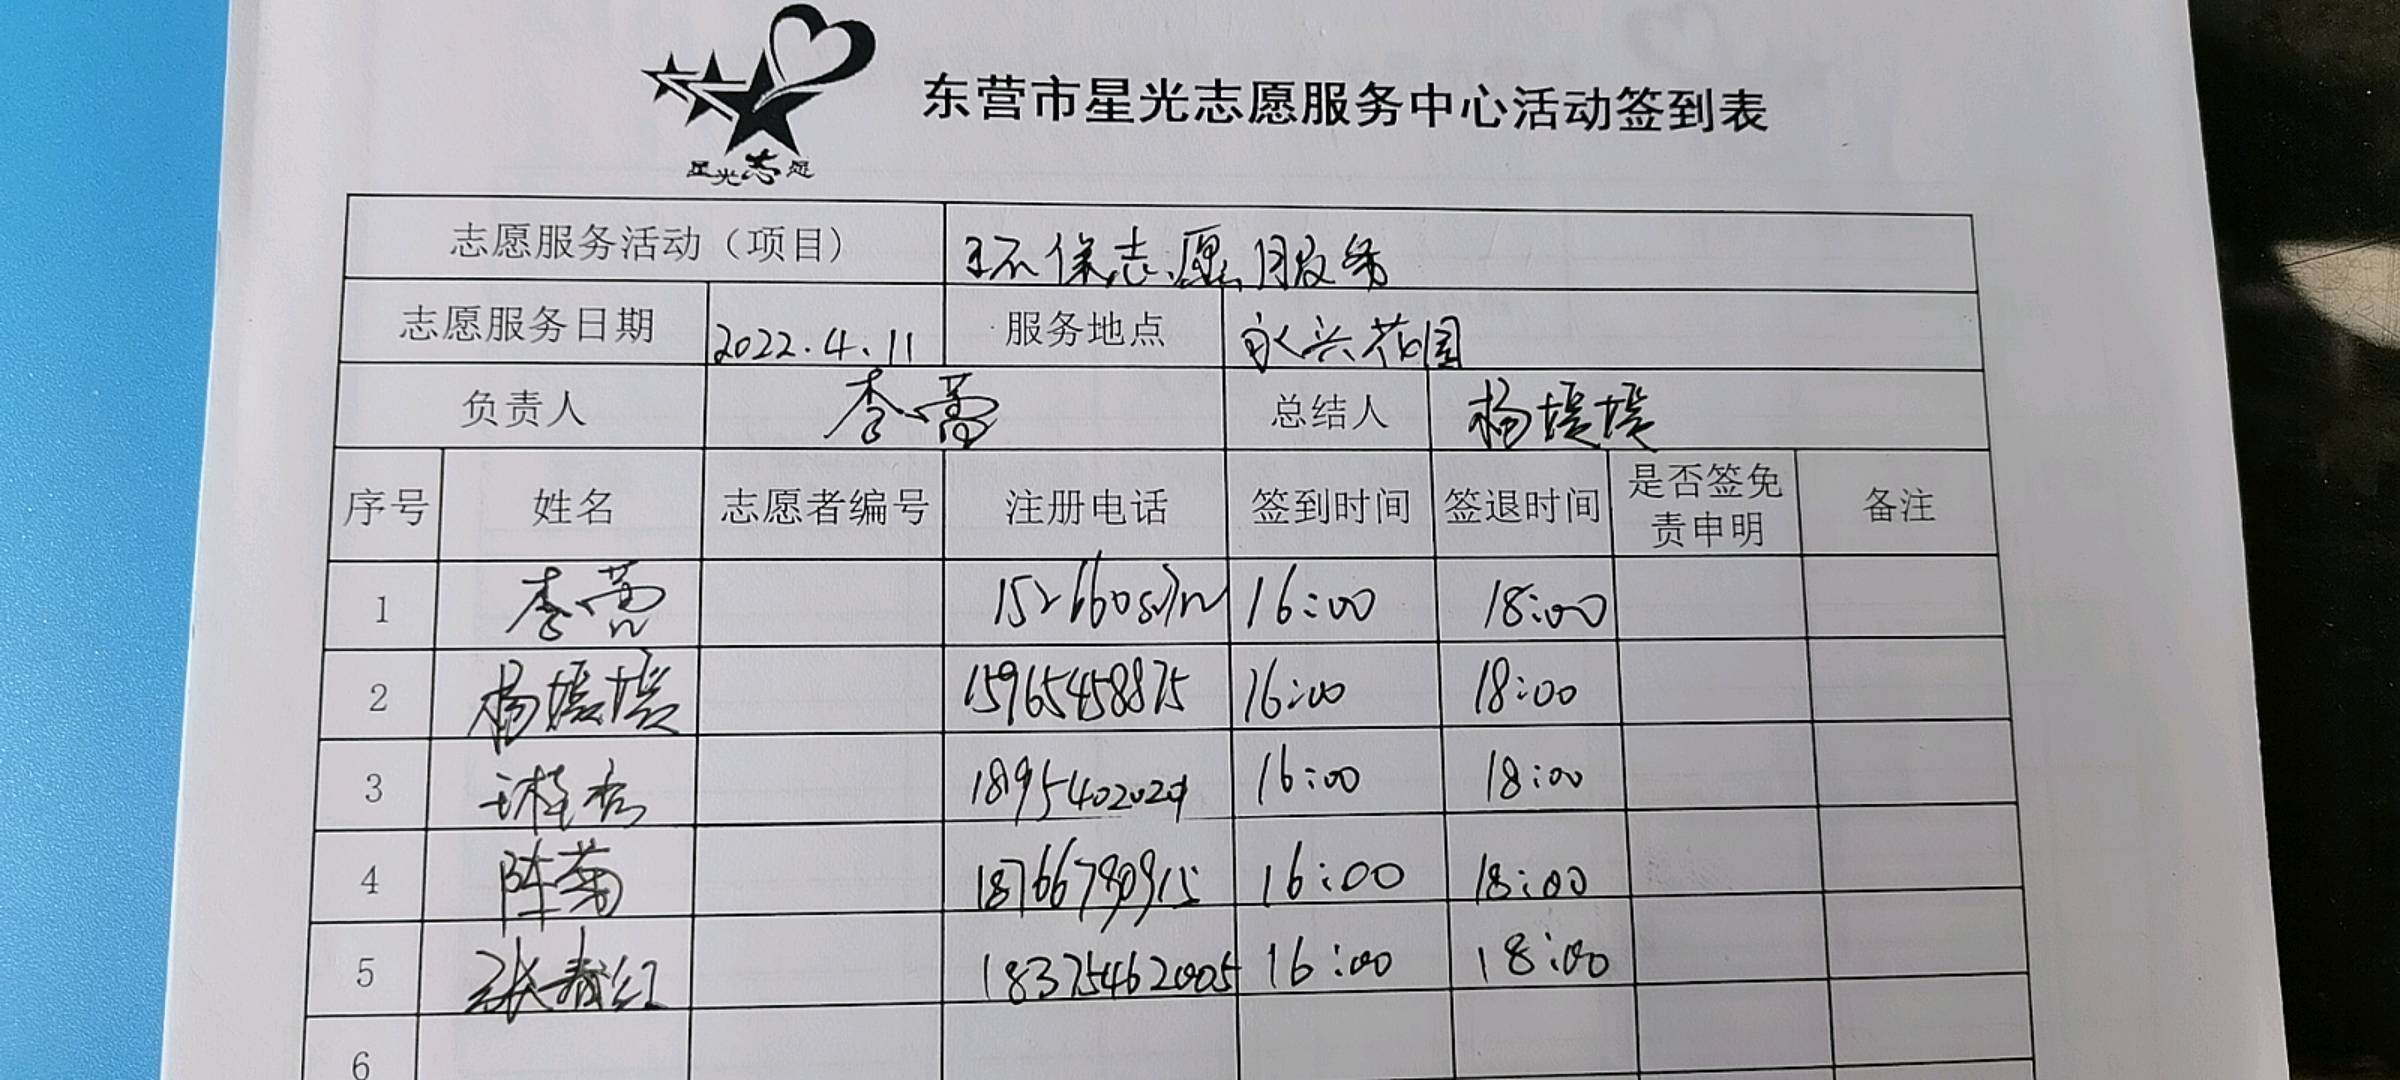 星光志愿
东营市星光志愿服务中心活动签到表
志愿服务活动（项目） 环保志愿服务
志愿服务日期 2022.4.11 服务地点 永兴花园
负责人 李 总结人 杨媛媛
序号 姓名 志愿者编号 注册电话 签到时间 签退时间 是否签免责申明 备注
1 李 16:00 18:00
2 杨媛媛 15965458875 16:00 18:00
3 18954020209 16:00 18:00
4 陈菊 18766790915 16:00 18:00
5 张春红 18375462005 16:00 18:00
6